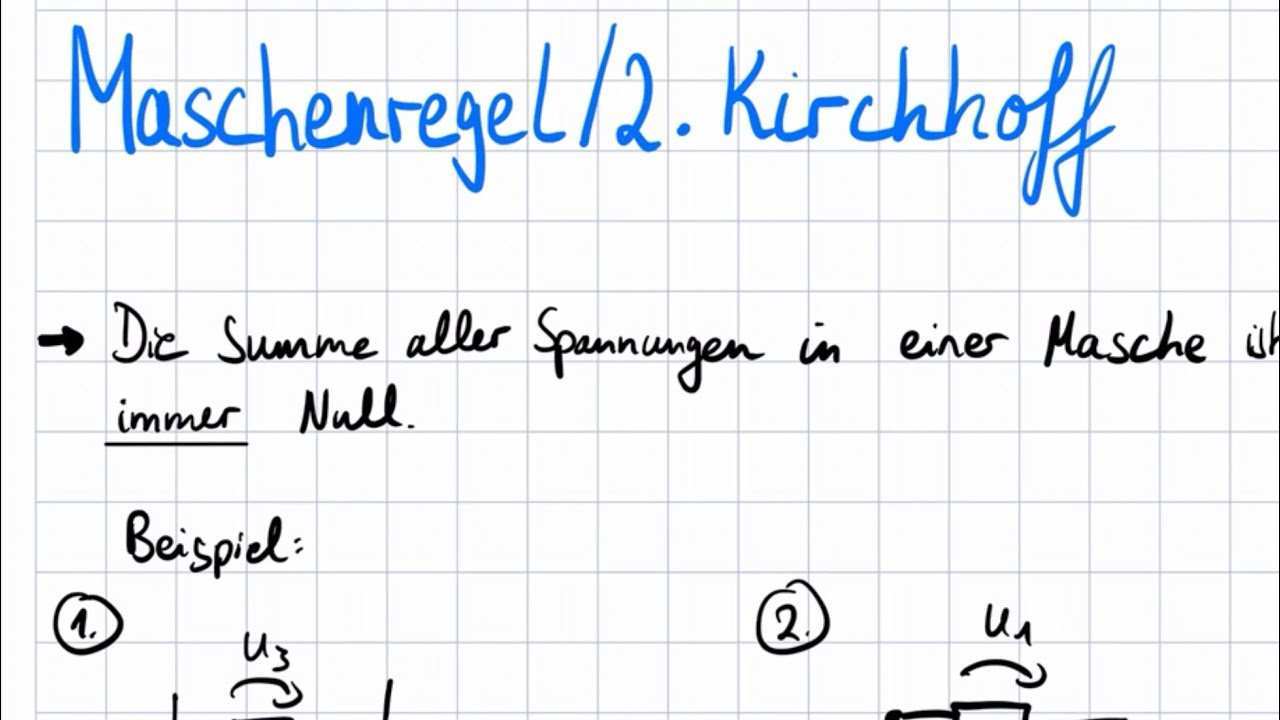 Maschenregel/2. Kirchhoff
→ Die Summe aller Spannungen in einer Masche ist
immer Null.
Beispiel:
1. 2.
U3 U1